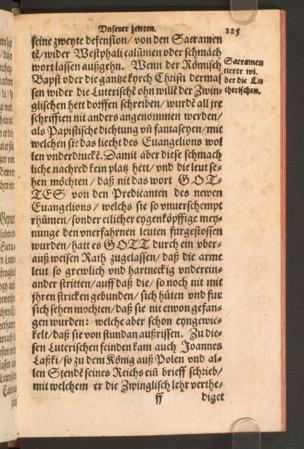 Vnserer zeitten.
225
seine zweyte defension/ von den Sacramen
tē/ wider Westphali calūmien oder schmäch
wort lassen außgehn. Wenn der Römisch
Bapst oder die gantze kyrch Christi dermas
sen wider die Luterische ohn wille der Zwin
glischen hett dörffen schreiben/ wurdē all jre
schrifften nit anders angenommen werden/
als Papistische dichtung vn̄ fantaseyen/ mit
welchen sie das liecht des Euangelions wol
ten vnderdruckē. Damit aber diese schmach
liche nachred kein platz hett/ vnd die leut se-
hen möchten/ daß nit das wort GOT-
TES von den Predicanten des newen
Euangelions/ welchs sie so vnuerschempt
rhümen/ sonder etlicher eygenköpffige mey-
nunge den vnerfahrnen leuten fürgestossen
wurden/ hatt es GOTT durch ein vber-
auß weisen Rath zugelassen/ daß die arme
leut so grewlich vnd hartneckig vnderein-
ander stritten/ auff daß die/ so noch nit mit
jhren stricken gebunden/ sich hüten vnd fur
sich sehen möchten/ daß sie nit etwon gefan-
gen wurden: welche aber schon eyngewic-
kelt/ daß sie von stundan außrissen. Zu die-
sen Luterischen feinden kam auch Joannes
Laßki/ so zu dem König auß Polen vnd al-
len Stende seines Reichs ein brieff schrieb/
mit welchem er die Zwinglisch lehr verthe-
ff
diget
Sacramen
tierer wi.
der die Lu
therischen.